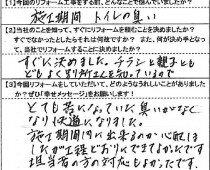 【1】今回のリフォーム工事をする前、どんなことで悩んでいましたか？
施工期間 トイレの臭い
【2】当社のことを知って、すぐにリフォームを頼むことを決めましたか？
すぐでなかったとしたらそれは何故ですか？ また、何が決め手となって、当社でリフォームすることに決めましたか？
すぐに決めました。チラシと親子とも
どもよく別所さんを知っているので
【3】今回リフォームをしていただいて、どのようなうれしいことがありましたか？ぜひ「幸せメッセージ」をお願いします！
とても気になっていた臭いがなく
なり快適になりました。
施工期間内に出来るのか心配は
したが工程どおりにできてよかったです
担当者の方の対応もよかったです